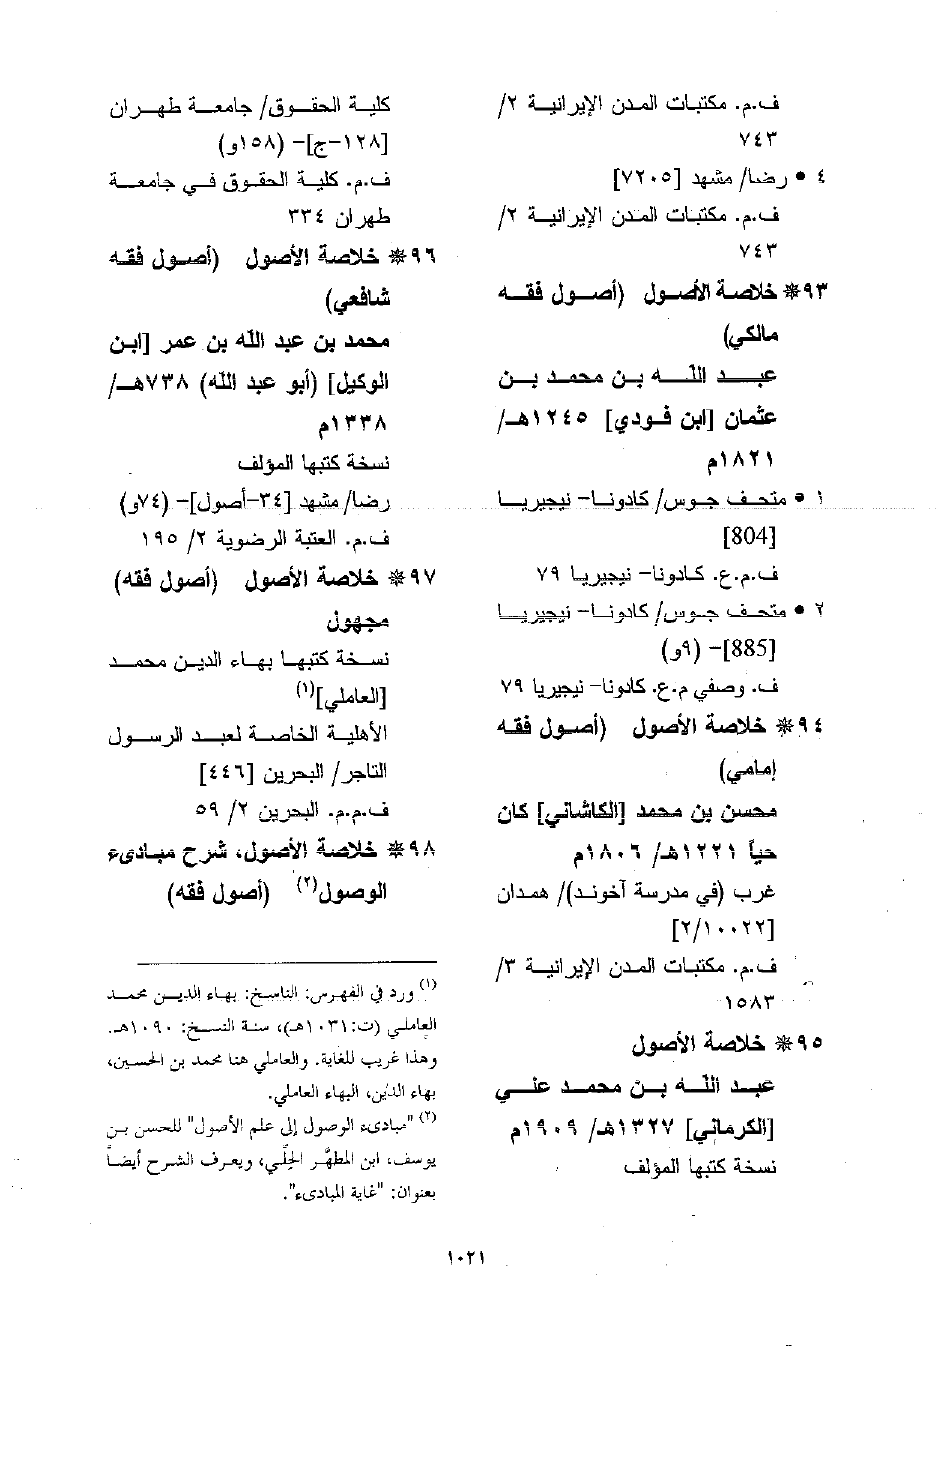 ف.م. مكتبات المدن الإيرانية ٢/
٧٤٣
٤ • رضا/ مشهد [٧٢٠٥]
ف.م. مكتبات المدن الإيرانية ٢/
٧٤٣
٩٣❋ خلاصة الأصول (أصول فقه
مالكي)
عبد الله بن محمد بن
عثمان [ابن فودي] ١٢٤٥هـ/
١٨٢١م
١ • متحف جوس/ كادونا- نيجيريا
[804]
ف.م.ع. كادونا- نيجيريا ٧٩
٢ • متحف جوس/ كادونا- نيجيريا
[885]- (٩و)
ف. وصفي م.ع. كادونا- نيجيريا ٧٩
٩٤❋ خلاصة الأصول (أصول فقه
إمامي)
محسن بن محمد [الكاشاني] كان
حياً ١٢٢١هـ/ ١٨٠٦م
غرب (في مدرسة آخوند)/ همدان
[٢/١٠٠٢٢]
ف.م. مكتبات المدن الإيرانية ٣/
١٥٨٣
٩٥❋ خلاصة الأصول
عبد الله بن محمد علي
[الكرماني] ١٣٢٧هـ/ ١٩٠٩م
نسخة كتبها المؤلف
كلية الحقوق/ جامعة طهران
[١٢٨-ج]- (١٥٨و)
ف.م. كلية الحقوق في جامعة
طهران ٣٣٤
٩٦❋ خلاصة الأصول (أصول فقه
شافعي)
محمد بن عبد الله بن عمر [ابن
الوكيل] (أبو عبد الله) ٧٣٨هـ/
١٣٣٨م
نسخة كتبها المؤلف
رضا/ مشهد [٣٤-أصول]- (٧٤و)
ف.م. العتبة الرضوية ٢/ ١٩٥
٩٧❋ خلاصة الأصول (أصول فقه)
مجهول
نسخة كتبها بهاء الدين محمد
[العاملي](١)
الأهلية الخاصة لعبد الرسول
التاجر/ البحرين [٤٤٦]
ف.م.م. البحرين ٢/ ٥٩
٩٨❋ خلاصة الأصول، شرح مبادىء
الوصول(٢) (أصول فقه)
(١) ورد في الفهرس: الناسخ: بهاء الدين محمد
العاملي (ت:١٠٣١هـ)، سنة النسخ: ١٠٩٠هـ.
وهذا غريب للغاية. والعاملي هنا محمد بن الحسين،
بهاء الدين، البهاء العاملي.
(٢) "مبادىء الوصول إلى علم الأصول" للحسن بن
يوسف، ابن المطهَّر الحِلّي، ويعرف الشرح أيضاً
بعنوان: "غاية المبادىء".
١٠٢١